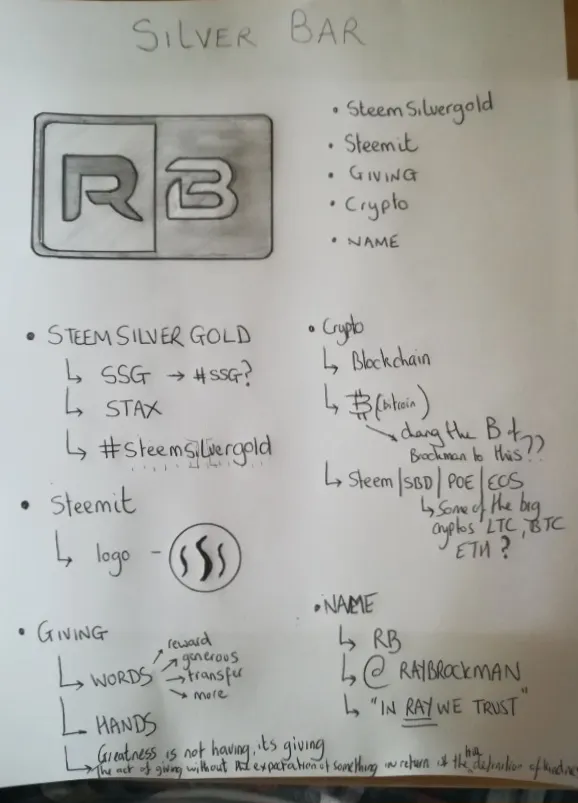 SILVER BAR
RB
• SteemSilvergold
• Steemit
• GIVING
• Crypto
• NAME
• STEEMSILVER GOLD
↳ SSG → #SSG?
↳ STAX
↳ #Steemsilvergold
• Steemit
↳ logo - SSS
• GIVING
↳ WORDS
reward
generous
transfer
more
↳ HANDS
↳ Greatness is not having, its giving
The act of giving without the expectation of something in return is the true definition of kindnes
• Crypto
↳ Blockchain
↳ ₿ (bitcoin)
→ chang the B of
Brockman to this??
↳ Steem|SBD|POE|EOS
↳ Some of the big
cryptos LTC, BTC
ETH?
• NAME
↳ RB
↳ @ RAYBROCKMAN
↳ "IN RAY WE TRUST"